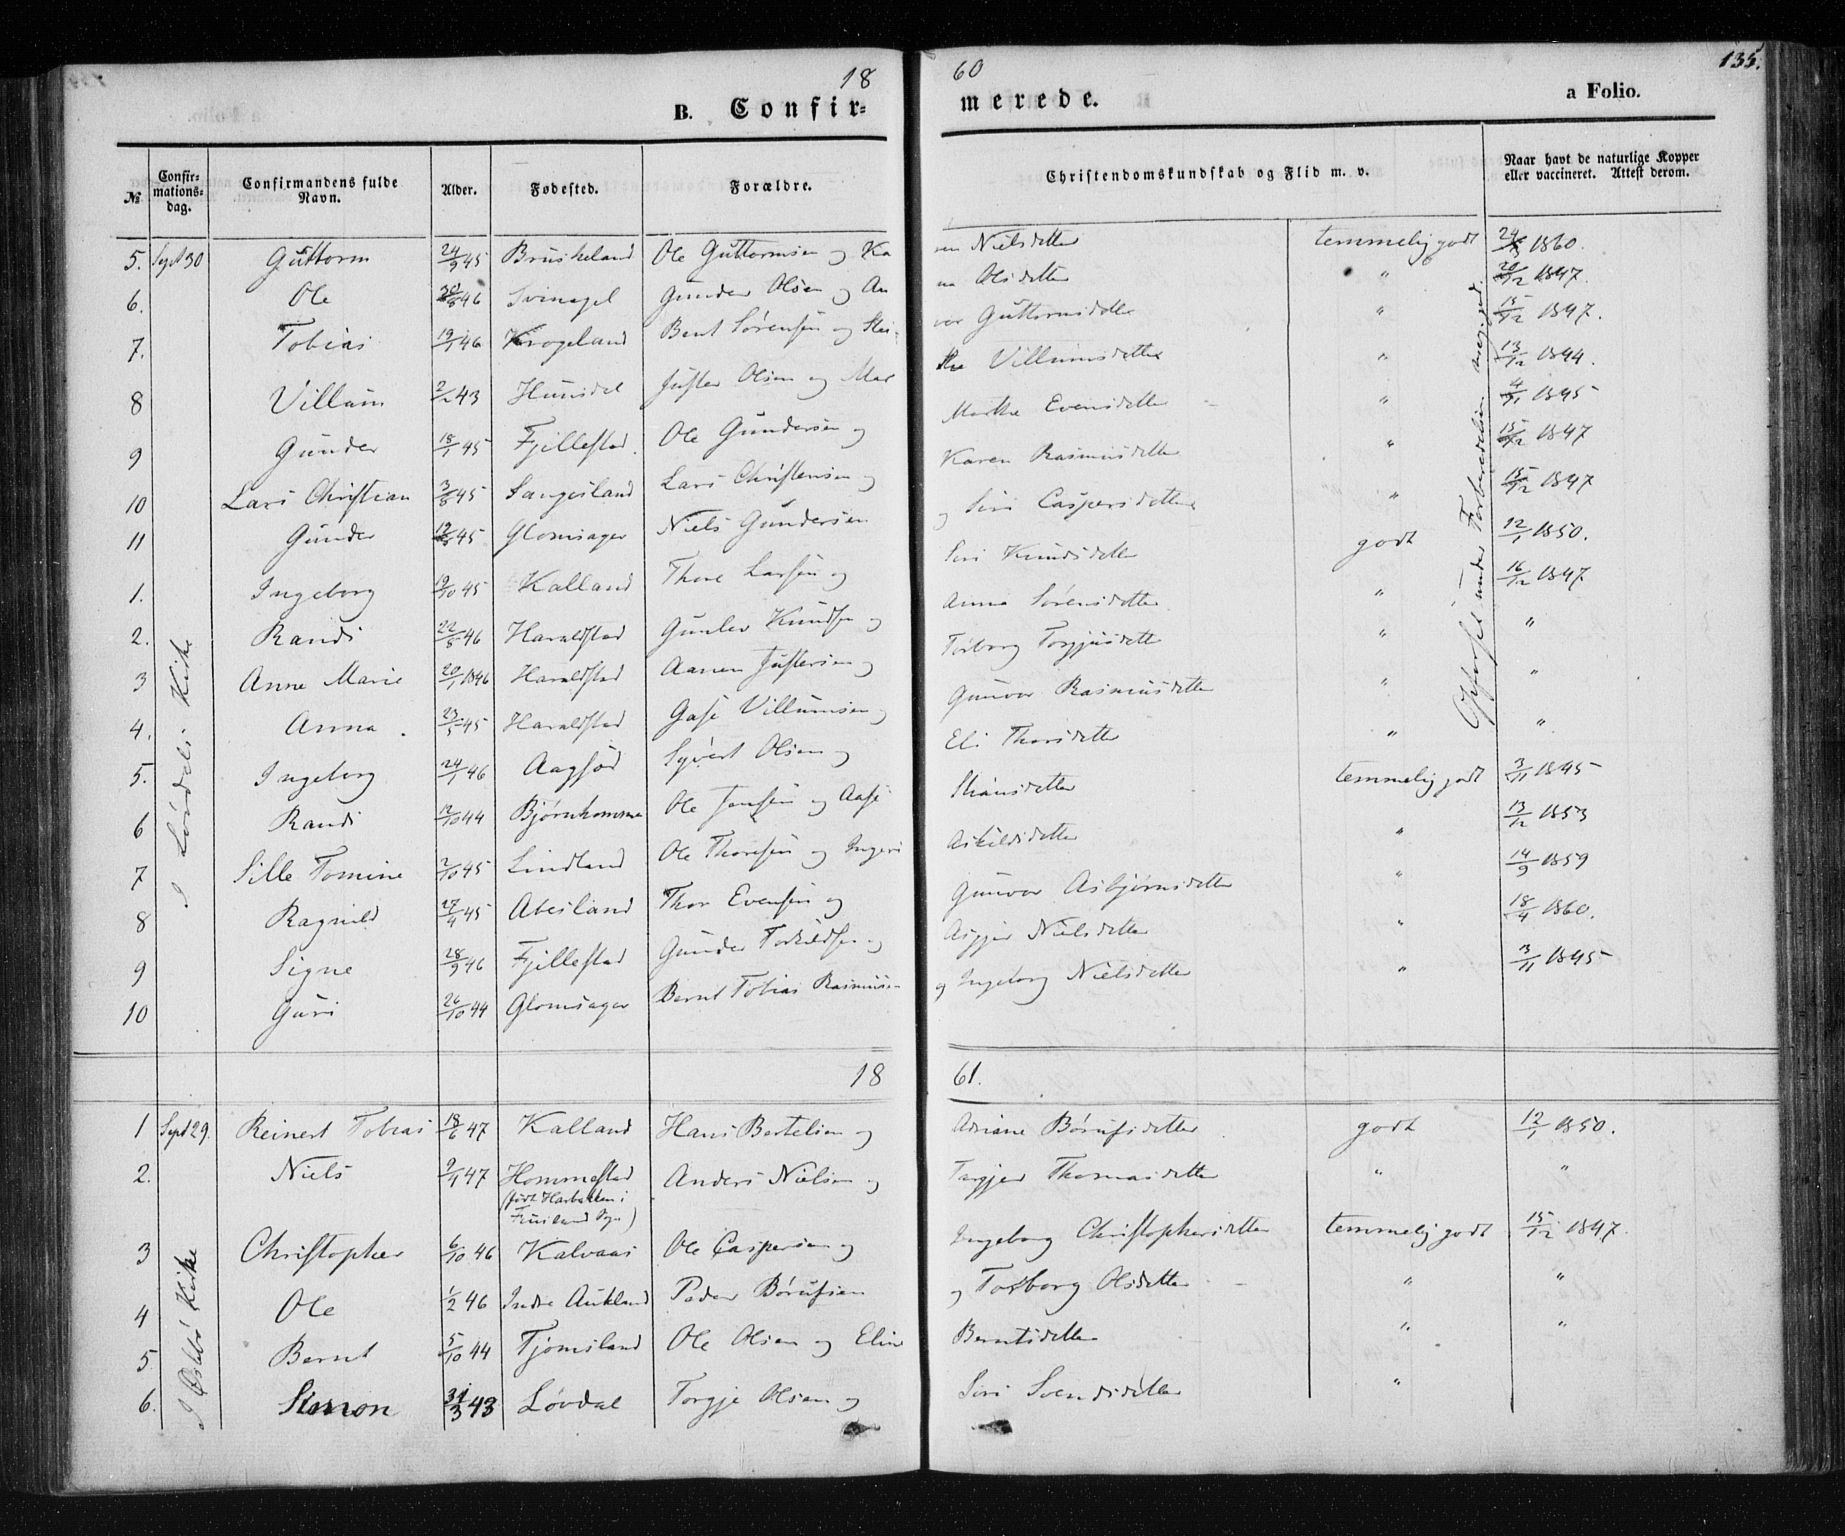 18 60 135.
B. Confir- merede. a Folio.
№ Confir-mations-dag. Confirmandens fulde Navn. Alder. Fødested. Forældre. Christendomskundskab og Flid m. v. Naar havt de naturlige Kopper eller vaccineret. Attest derom.
5. Sept 30 Guttorm 24/9 45 Bruskeland Ole Guttormsen og Ka ren Nielsdetter temmelig godt 24/8 1860.
6. Ole 46 Svinagel Gunder Olsen og An na Olsdetter " 20/12 1847.
7. Tobias 19/1 46 Krogeland Bent Sørensen og vor Guttormsdetter " 15/12 1847.
8 Villum 2/2 43 Hunsdal Juster Olsen og Mar the Villumsdetter " 13/12 1844.
9 Gunder 18/1 45 Fjillestad. Ole Gundersen og Marthe Evensdetter " 4/11 1845
10 Lars Christian 3/8 45 Sangesland Lars Christensen og Karen Rasmusdetter " 15/12 1847
11 Gunder 45 Glomsager Niels Gundersen og Siri Caspersdetter " 15/12 1847
1. Ingeborg 9/10 45 Kalland Thore Larsen og Siri Knudsdetter godt 12/1 1850.
2. Randi 22/5 46 Haraldstad Gunlev Knudsen og Anna Sørensdetter " 16/12 1847
3 Anne Marie 20/1 1846 Haraldstad Aanen Justersen og Torborg Torgjusdetter " "
4. Anna. 23/5 45 Haraldstad Villumsen og Gunvor Rasmusdetter " "
5. Ingeborg 24/1 46 Aagsød Syvert Olsen og Eli Thorsdetter " "
6 Randi 12/10 44 Bjørnhommen Ole Jensen og Aase temmelig godt 3/11 1845
7 Sille Tomine 2/10 45 Lindland Ole Thoresen og Ingeri Askildsdetter " 13/12 1853
8 Ragnild 27/4 45 Abesland Thor Evensen og Gunvor Asbjørnsdetter " 14/9 1859
9 Signe 28/9 46 Fjillestad Gunder Torkildsen og Asgjer Nielsdetter " 18/4 1860.
10 Guri 26/10 44 Glomsager Bernt Tobias Rasmussen og Ingeborg Nielsdetter " 3/11 1845
I Løvdals Kirke
Opførsel under Forberedelsen meget god.
18 61.
1 Sept 29. Reinert Tobias 18/6 47 Kalland Hans Bertelsen og Adriane Børufsdetter godt 12/1 1850.
2. Niels 9/1 47 Hommestad Anders Nielsen og Torgjer Thomasdetter " "
(født Harbakken i
Sogn)
3 Christopher 6/10 46 Kalvaas Ole Caspersen og Ingeborg Christophersdetter temmelig godt 15/12 1847.
4 Ole 1/2 46 Indre Aukland Peder Børufsen og Torborg Olsdetter " "
5 Bernt 5/10 44 Tjomsland Ole Olsen og Elin Berntsdetter " "
6. Simon 31/3 43 Løvdal Torgje Olsen og Siri Svendsdetter "
I Øslebø Kirke